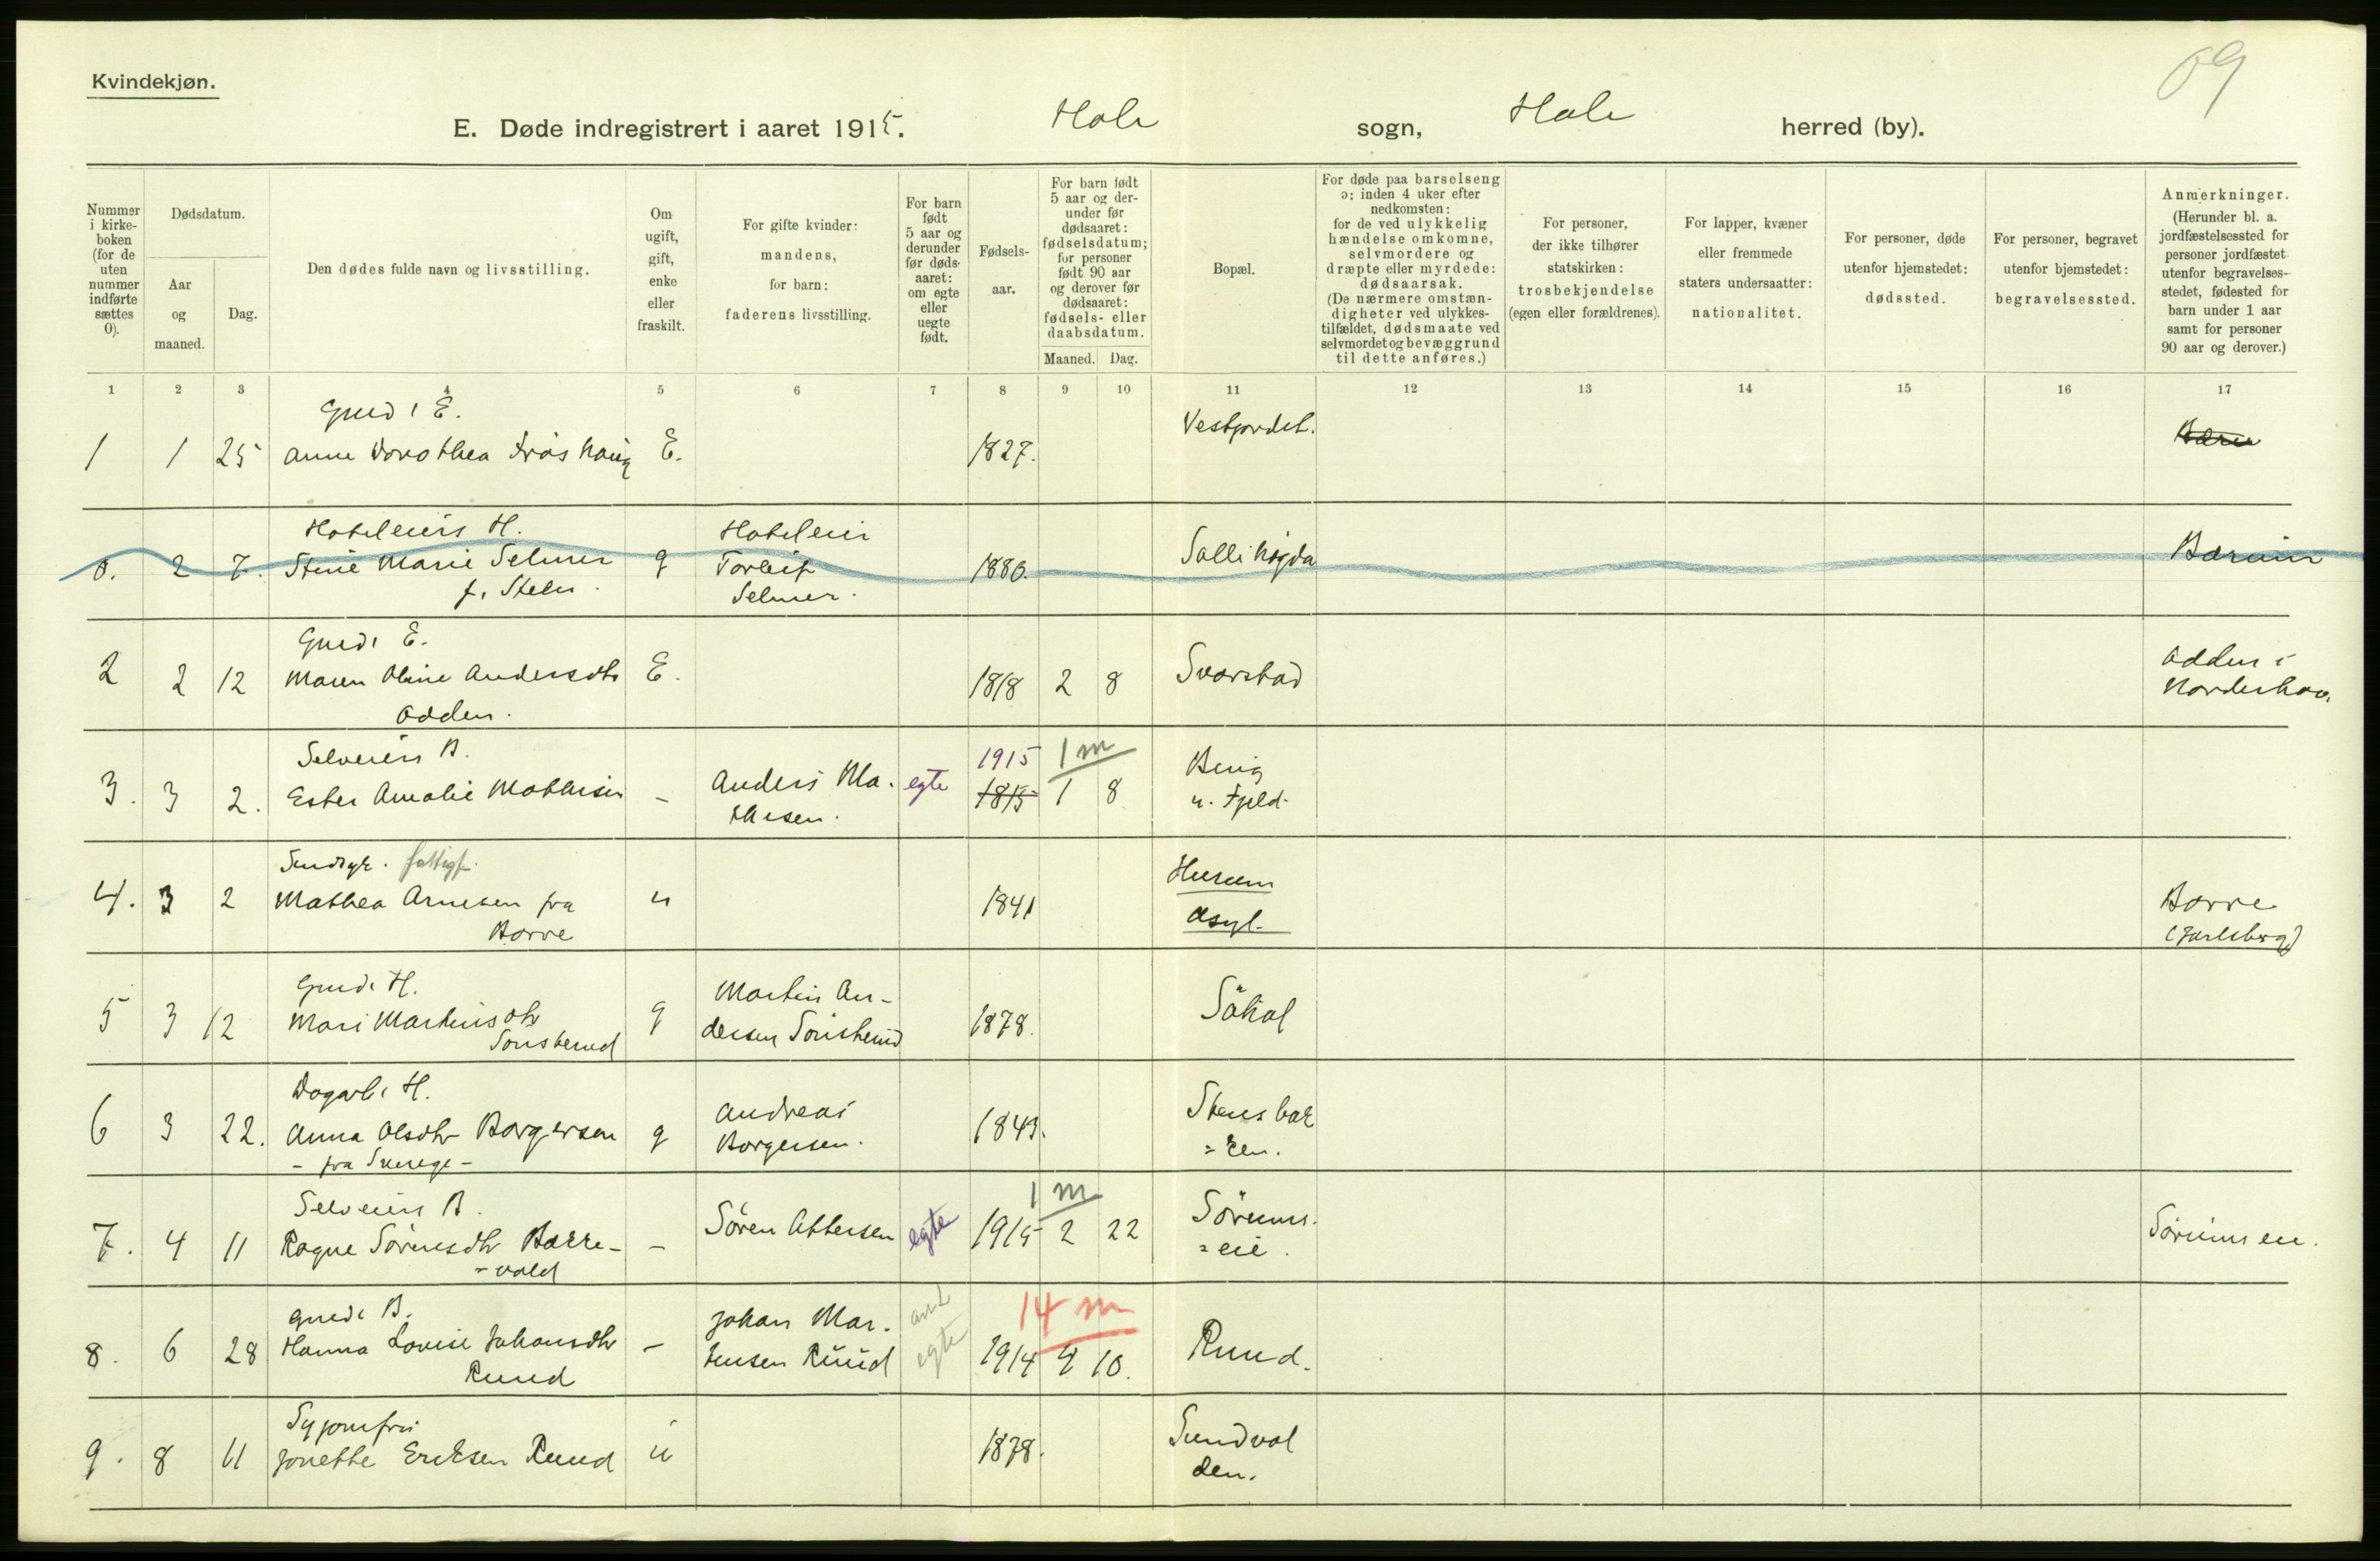 69
Kvindekjøn.
E. Døde indregistrert i aaret 1915. Hole sogn, Hole herred (by).
Nummer i kirkeboken (for de uten nummer indførte sættes 0).
Dødsdatum.
Aar og maaned.
Dag.
Den dødes fulde navn og livsstilling.
Om ugift, gift, enke eller fraskilt.
For gifte kvinder: mandens, for barn: faderens livsstilling.
For barn født 5 aar og derunder før dødsaaret: om egte eller uegte født.
Fødselsaar.
For barn født 5 aar og derunder før dødsaaret: fødselsdatum; for personer født 90 aar og derover før dødsaaret: fødsels- eller daabsdatum.
Maaned. Dag.
Bopæl.
For døde paa barselseng ɔ: inden 4 uker efter nedkomsten: for de ved ulykkelig hændelse omkomne, selvmordere og dræpte eller myrdede: dødsaarsak. (De nærmere omstændigheter ved ulykkestilfældet, dødsmaate ved selvmordet og bevæggrund til dette anføres.)
For personer, der ikke tilhører statskirken: trosbekjendelse (egen eller forældrenes).
For lapper, kvæner eller fremmede staters undersaatter: nationalitet.
For personer, døde utenfor hjemstedet: dødssted.
For personer, begravet utenfor hjemstedet: begravelsessted.
Anmerkninger. (Herunder bl. a. jordfæstelsessted for personer jordfæstet utenfor begravelsesstedet, fødested for barn under 1 aar samt for personer 90 aar og derover.)
1 2 3 4 5 6 7 8 9 10 11 12 13 14 15 16 17
Gmd. E. Vestjordet.
1 1 25 Anne Dorothea Frøshaug E. 1827.
Hoteleiers H. Hoteleier
0. 2 7. Stine Marie Selmer g Torleif 1880. Sollihøgda Bærum
f. Steen. Selmer.
Gmd. E.
2 2 12 Maren Oline Andersdtr E. 1818 2 8 Svarstad Odden i
Odden. Norderhov.
Selveiers B. 1915 1 m Berig
3. 3 2. Ester Amalie Mathisen - Anders Ma- egte 1815 1 8 u. Fjeld.
thisen.
Sindsyk. fattigf. Husum
4. 3 2 Mathea Arnesen fra u 1841 Asyl. Borre
Borre (Jarlsberg)
Gmd. H. Martin An-
5 3 12 Mari Martinsdtr g dersen Sonsterud 1878. Søhol
Sonsterud
Dagarb. H. Andreas Stensbak
6 3 22. Anna Olsdtr Borgersen g Borgersen. 1843. =ken.
- fra Sverige -
Selveiers B. 1 m Sørums
7. 4 11 Ragne Sørensdtr Bakke- - Søren Ottersen egte 1915 2 22 =eie. Sørumseie.
=vold
Gmd. B. Johan Mar. 14 m
8. 6 28 Hanna Lovise Johansdtr - Jensen Ruud egte 1914 4 10. Ruud.
Ruud
Syjomfru Sundvol
9. 8 11 Jonette Eriksen Ruud u 1878. den.